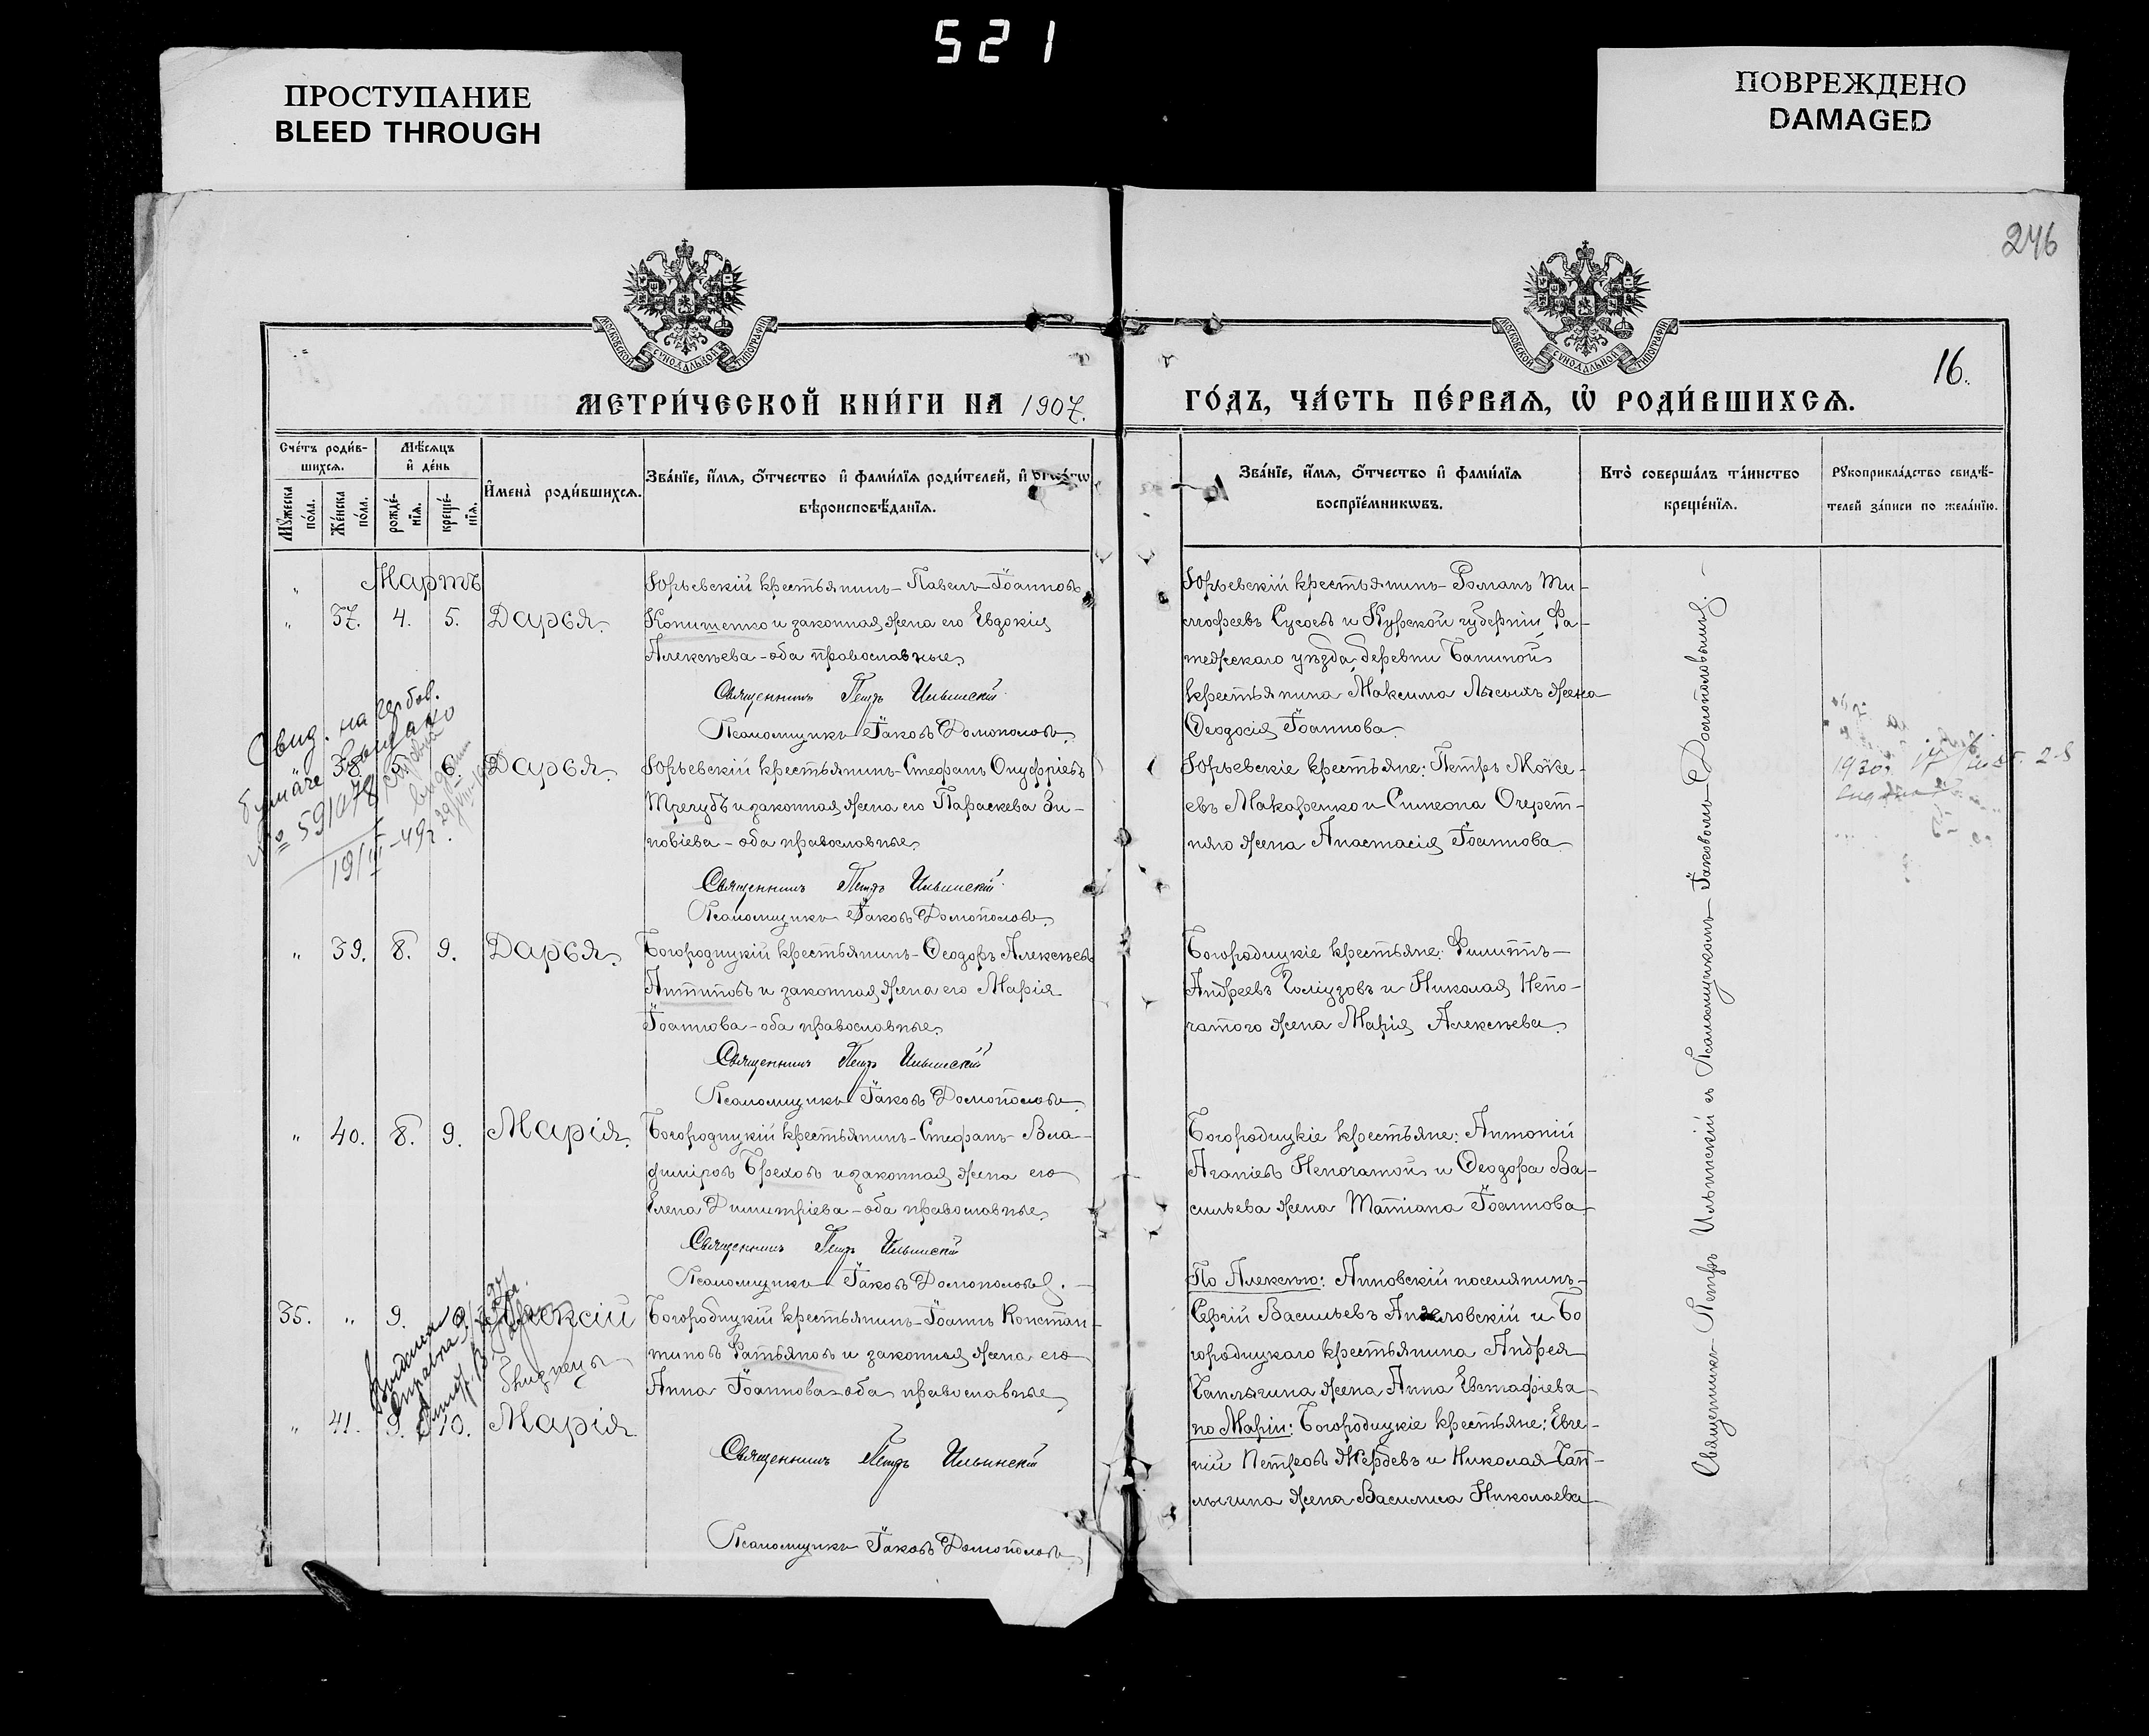 521
ПРОСТУПАНИЕ
BLEED THROUGH
ПОВРЕЖДЕНО
DAMAGED
246
МОСКОВСКОЙ СѴНОДАЛЬНОЙ ТИПОГРАФІИ
МОСКОВСКОЙ СѴНОДАЛЬНОЙ ТИПОГРАФІИ
16.
МЕТРИ́ЧЕСКОЙ КНИ́ГИ НА 1907.
ГО́ДЪ, ЧА́СТЬ ПЕ́РВАѦ, Ѡ҆ РОДИ́ВШИХСѦ.
Сче́тъ роди́в-
шихсѧ.
Мѣ́сѧцъ
и҆ де́нь
Мꙋ́жеска по́ла.
Же́нска по́ла.
рожде́-
нїѧ.
креще́-
нїѧ.
И҆мена̀ роди́вшихсѧ.
Зва́нїе, и҆́мѧ, ѻ҆́тчество и҆ фами́лїѧ роди́телей, и҆
вѣроисповѣ́данїѧ.
Зва́нїе, и҆́мѧ, ѻ҆́тчество и҆ фами́лїѧ
воспрїе́мникѡвъ.
Кто̀ соверша́лъ та́инство
креще́нїѧ.
Рꙋкоприкла́дство свидѣ́-
телей за́писи по жела́нїю.
Мартъ
" 37. 4. 5. Дарья.
Юрьевскій крестьянинъ - Павелъ Іоанновъ
Копишенко и законная жена его Евдокія
Алексѣева - оба православные.
Священникъ Петръ Ильинскій
Псаломщикъ Іаковъ Домополовъ
Юрьевскій крестьянинъ - Романъ Ти-
мофеевъ Сусоевъ и Курской губерніи Фа-
тежскаго уѣзда деревни Батиной
крестьянина Максима Лысыхъ жена
Ѳеодосія Іоаннова
Свид. на гербов.
бумаге выдано
№ 591078
19/III-49г.
" 38. 5. 6. Дарья.
Юрьевскій крестьянинъ - Стефанъ Онуфріевъ
Трегубъ и законная жена его Параскева Зи-
новіева - оба православные.
Священникъ Петръ Ильинскій
Псаломщикъ Іаковъ Домополовъ
Юрьевскіе крестьяне: Петръ Моке-
евъ Макаренко и Симеона Очерет-
няго жена Анастасія Іоаннова
" 39. 8. 9. Дарья.
Богородицкій крестьянинъ - Ѳеодоръ Алексѣевъ
Антиповъ и законная жена его Марія
Іоаннова - оба православные.
Священникъ Петръ Ильинскій
Псаломщикъ Іаковъ Домополовъ
Богородицкіе крестьяне: Филиппъ
Андреевъ Голіузовъ и Николая Непо-
чатого жена Марія Алексѣева.
" 40. 8. 9. Марія.
Богородицкій крестьянинъ - Стефанъ Вла-
диміровъ Бреховъ и законная жена его
Елена Димитріева - оба православные.
Священникъ Петръ Ильинскій
Псаломщикъ Іаковъ Домополовъ.
Богородицкіе крестьяне: Антоній
Агапіевъ Непочатой и Ѳеодора Ва-
сильева жена Татіана Іоаннова
35. " 9. Алексій
близнецы
" 41. 9. 10. Марія
Выдана
справка
Богородицкій крестьянинъ - Іоаннъ Констан-
тиновъ Фатьяновъ и законная жена его
Анна Іоаннова - оба православные
Священникъ Петръ Ильинскій
Псаломщикъ Іаковъ Домополовъ
По Алексѣю: Анновскій поселянинъ -
Сергій Васильевъ и Бо
городицкаго крестьянина Андрея
Чаплыгина жена Анна Евстафіева
по Маріи: Богородицкіе крестьяне: Евге-
ній Петровъ Жердевъ и Николая Чап-
лыгина жена Василиса Николаева
Священникъ Петръ Ильинскій съ Псаломщикомъ Іаковомъ Домополовымъ.